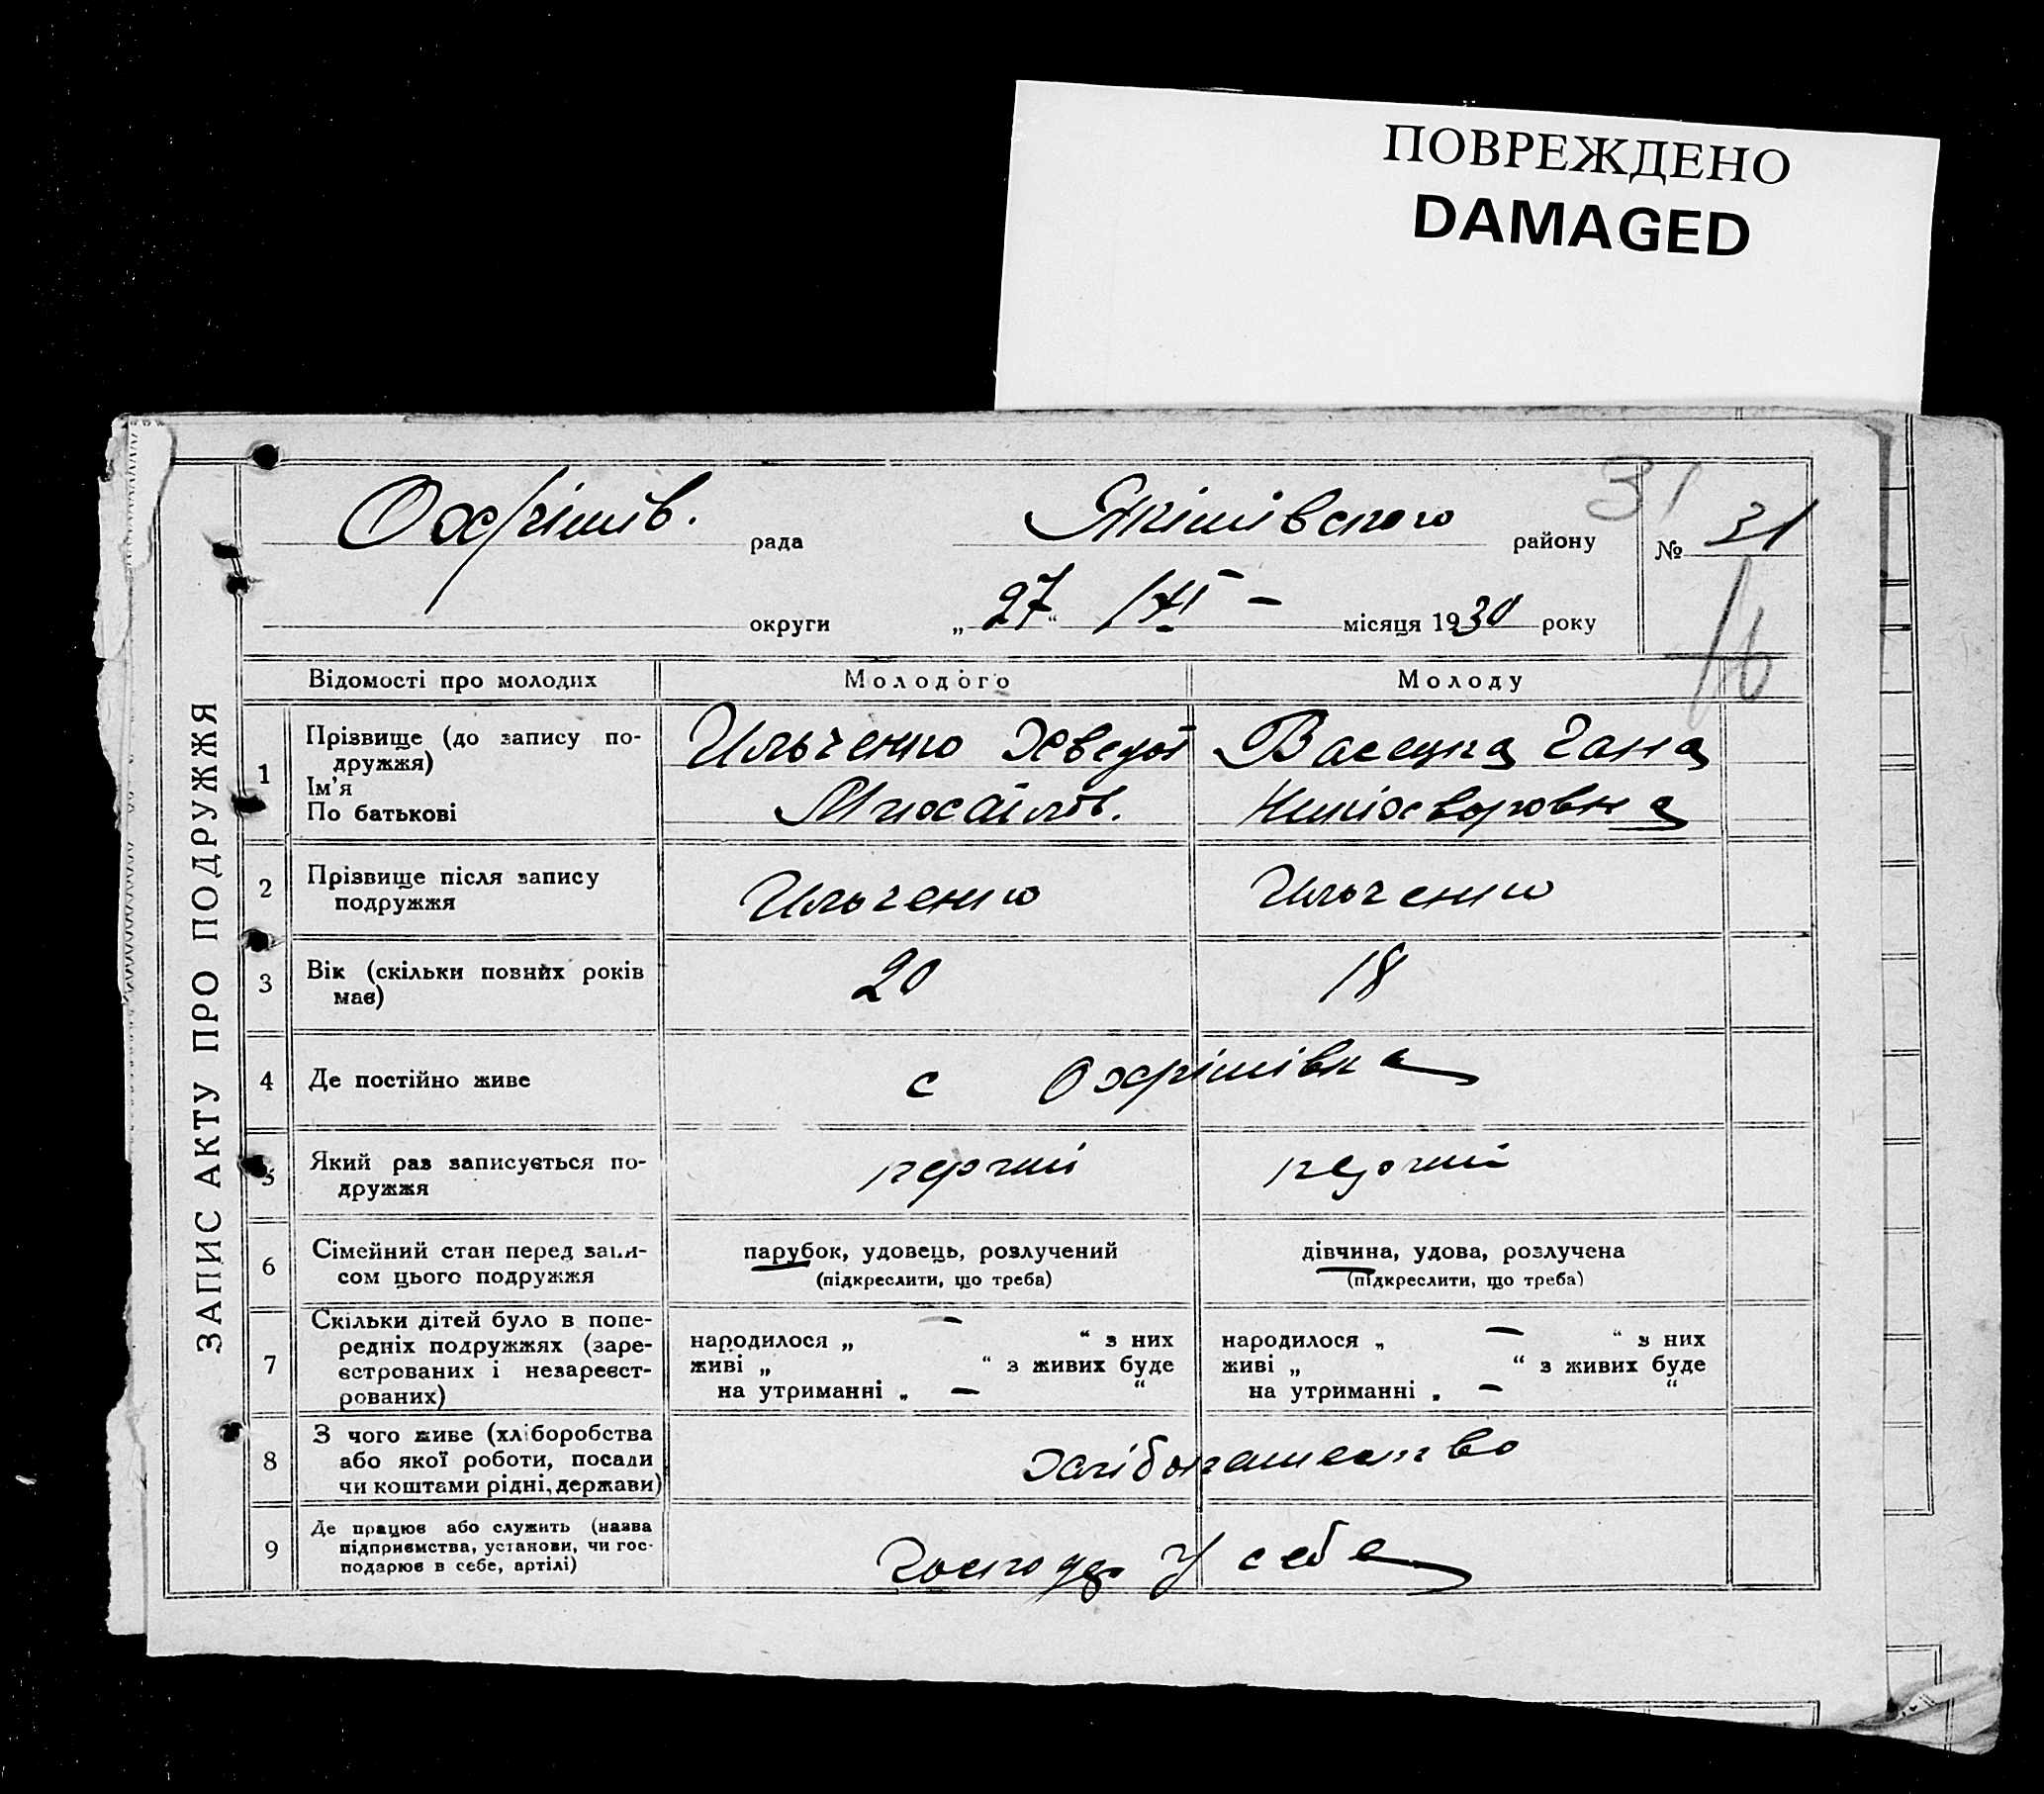 ПОВРЕЖДЕНО
DAMAGED
ЗАПИС АКТУ ПРО ПОДРУЖЖЯ
31
Охрімів. рада Якімівского району № 31
округи „27“ місяця 1930 року
Відомості про молодих Молодого Молоду
1 Прізвище (до запису по-
дружжя)
Ім'я
По батькові
Ильченко Хведот
Михайлов.
Васецка Гана
Никіхворовна
2 Прізвище після запису
подружжя
Ильченко Ильченко
3 Вік (скільки повних років
має)
20 18
4 Де постійно живе с Охрімівка
5 Який раз записується по-
дружжя
перший перший
6 Сімейний стан перед запи-
сом цього подружжя
парубок, удовець, розлучений
(підкреслити, що треба)
дівчина, удова, розлучена
(підкреслити, що треба)
7 Скільки дітей було в попе-
редніх подружжях (заре-
єстрованих і незареєст-
рованих)
народилося „ — “ з них
живі „ “ з живих буде
на утриманні „ — “
народилося „ — “ з них
живі „ “ з живих буде
на утриманні „ — “
8 З чого живе (хліборобства
або якої роботи, посади
чи коштами рідні, держави)
хлібопашество
9 Де працює або служить (назва
підприємства, установи, чи гос-
подарює в себе, артілі)
господар у себе